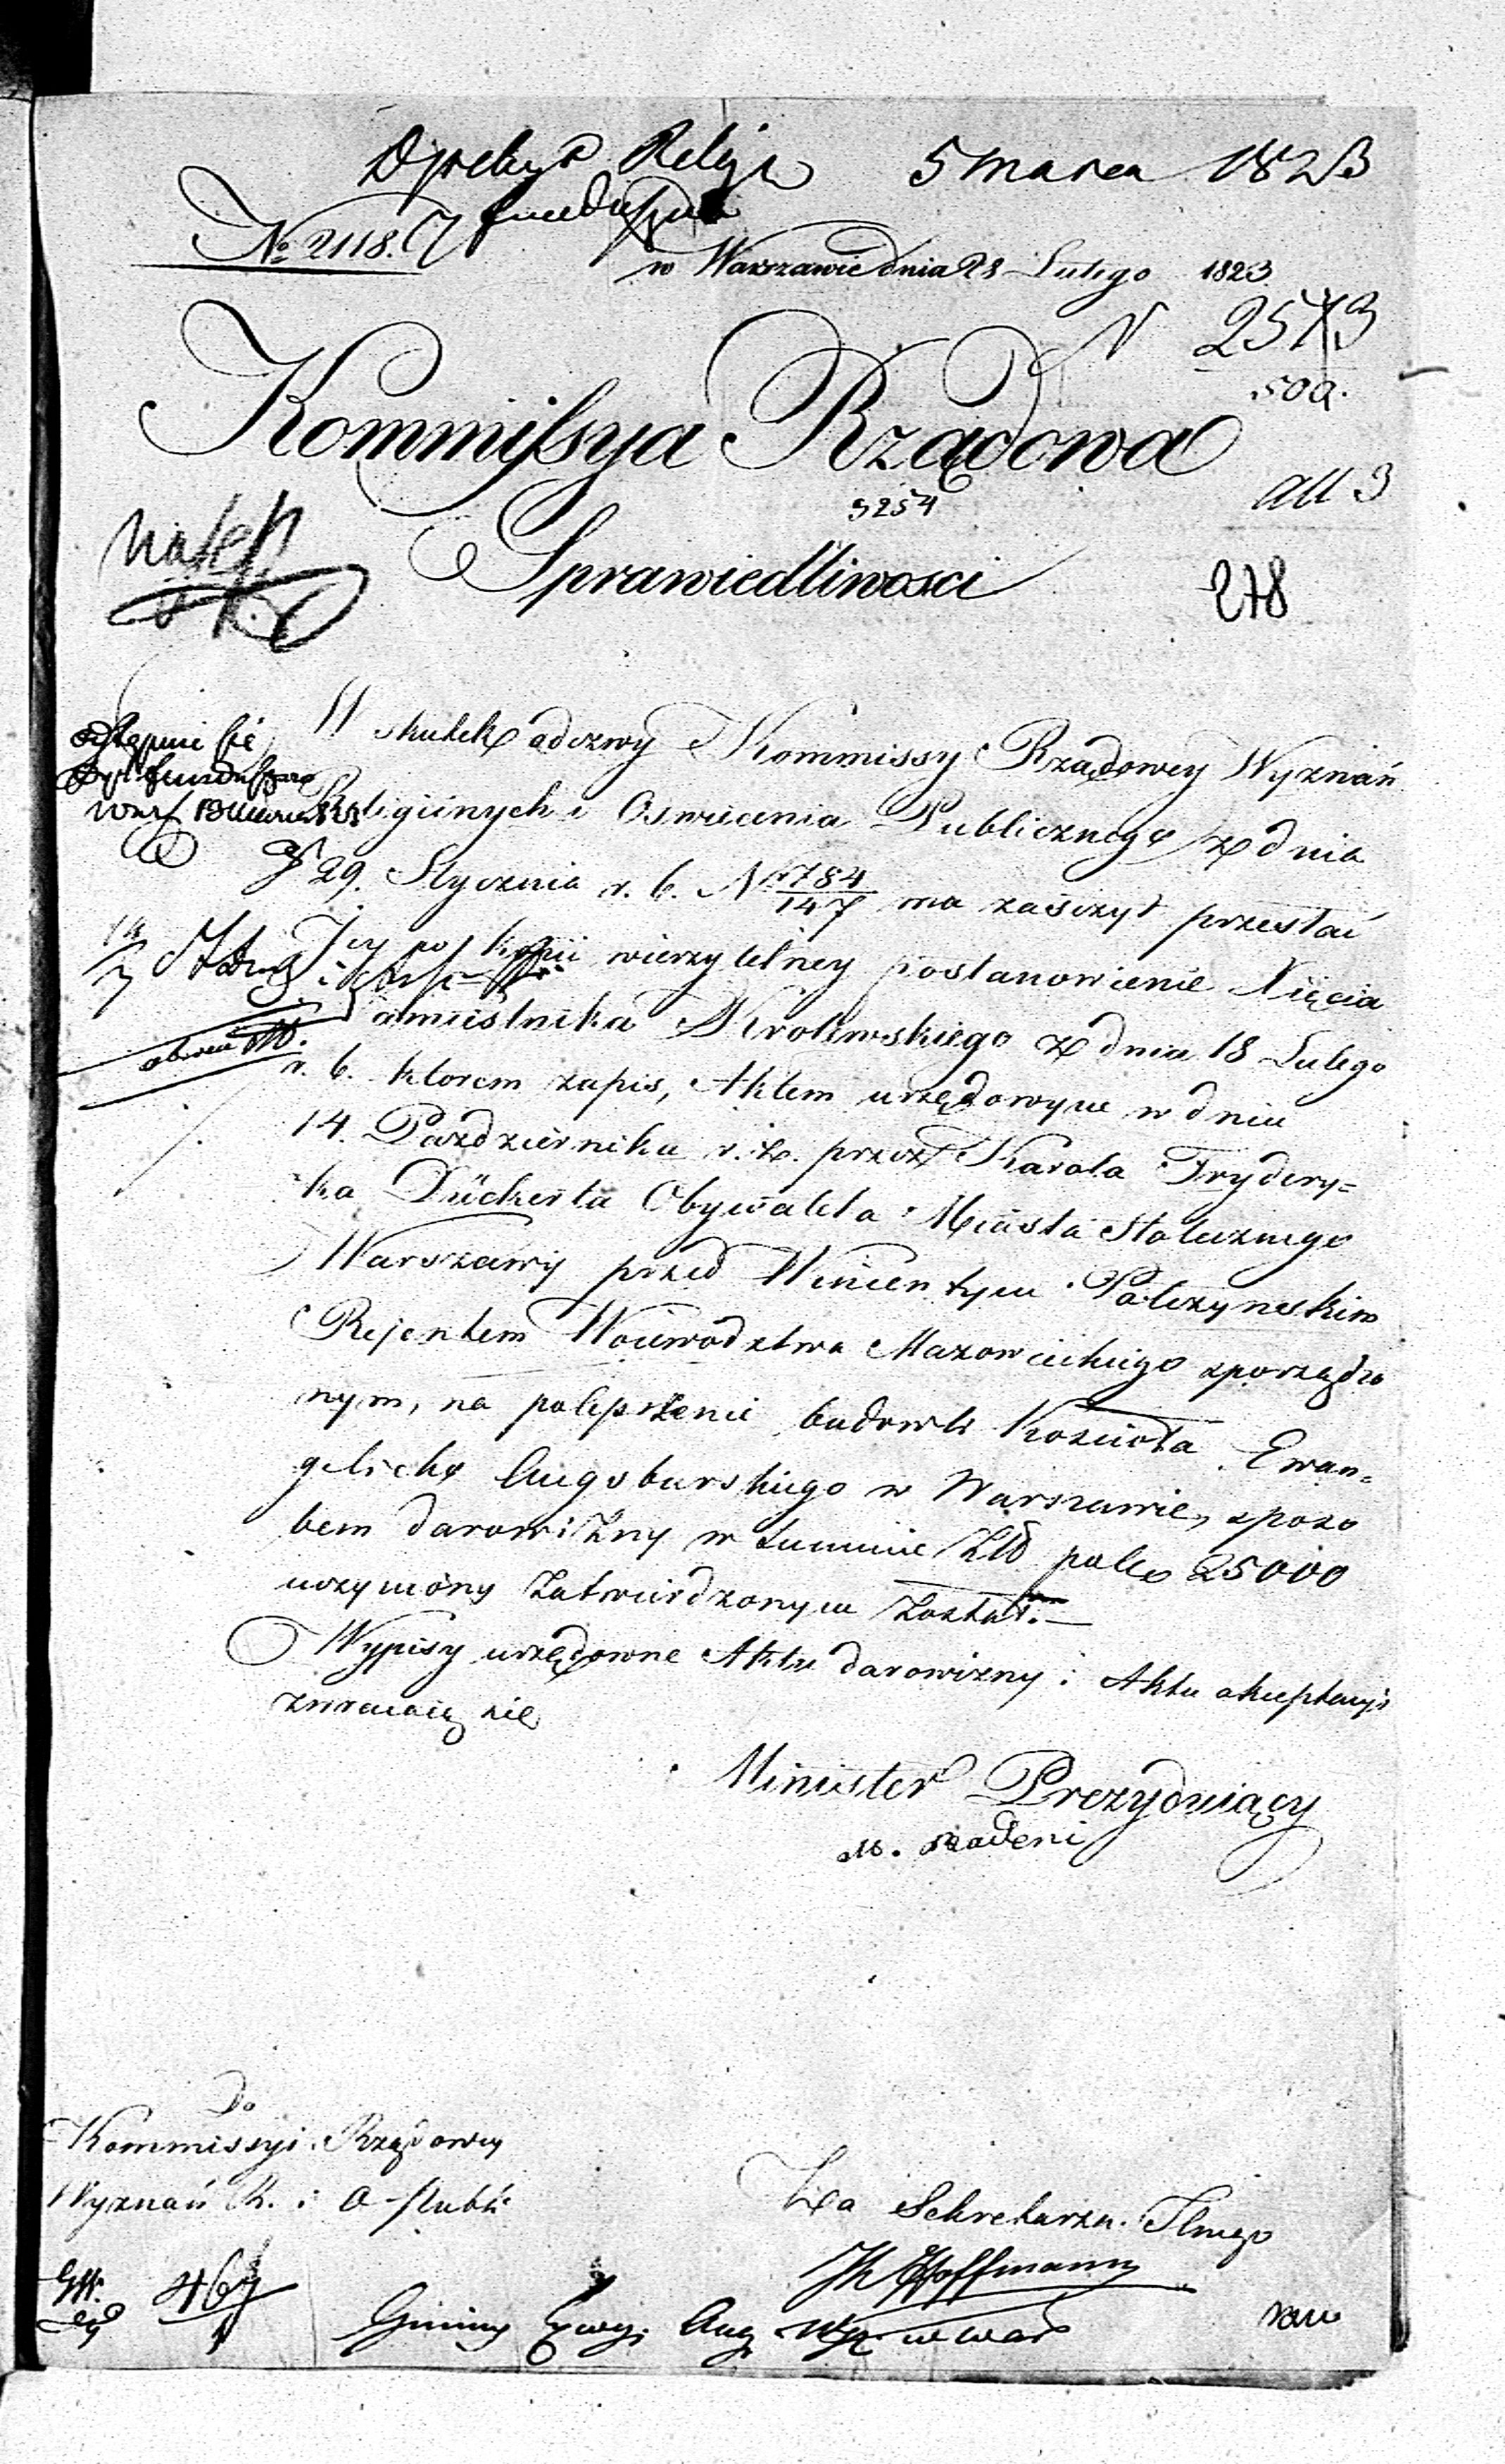 5 Marca 1823
No 2118.
w Warszawie dnia 28 Lutego 1823
N 2573
500.
Kommissya Rządowa
5254
all 3
Sprawiedliwosci
278
W skutek odezwy Kommissyi Rządowey Wyznań
Religiinych i Oswiecenia Publicznego z dnia
29. Stycznia r. b. N 784/147 ma zaszczyt przesłać
Jey w kopii wierzytelney postanowienie Xięcia
Namiestnika Krolewskiego z dnia 18 Lutego
r. b. ktorem zapis, Aktem urzędowym w dniu
14. Pazdziernika r. z. przez Karola Frydery=
ka Dückerta Obywatela Miasta Stołecznego
Warszawy przed Wincentym Polczynskim
Rejentem Woiewodztwa Mazowieckiego sporządzo
nym, na polepszenie budowli Koscioła Ewan=
gelicko Augsburskiego w Warszawie, sposo
bem darowizny w summie Złł polch 25000
uczyniony Zatwierdzonym Został.—
Wypisy urzędowe Aktu darowizny i Aktu akceptacyi
zwracaią się
Minister Prezyduiący
M. Badeni
Do
Kommissyi Rządowey
Wyznań R. i O. Publi
Za Sekretarza Jlnego
Hoffmann
467
Gminy Ewaj. Aug. Wyz. w War